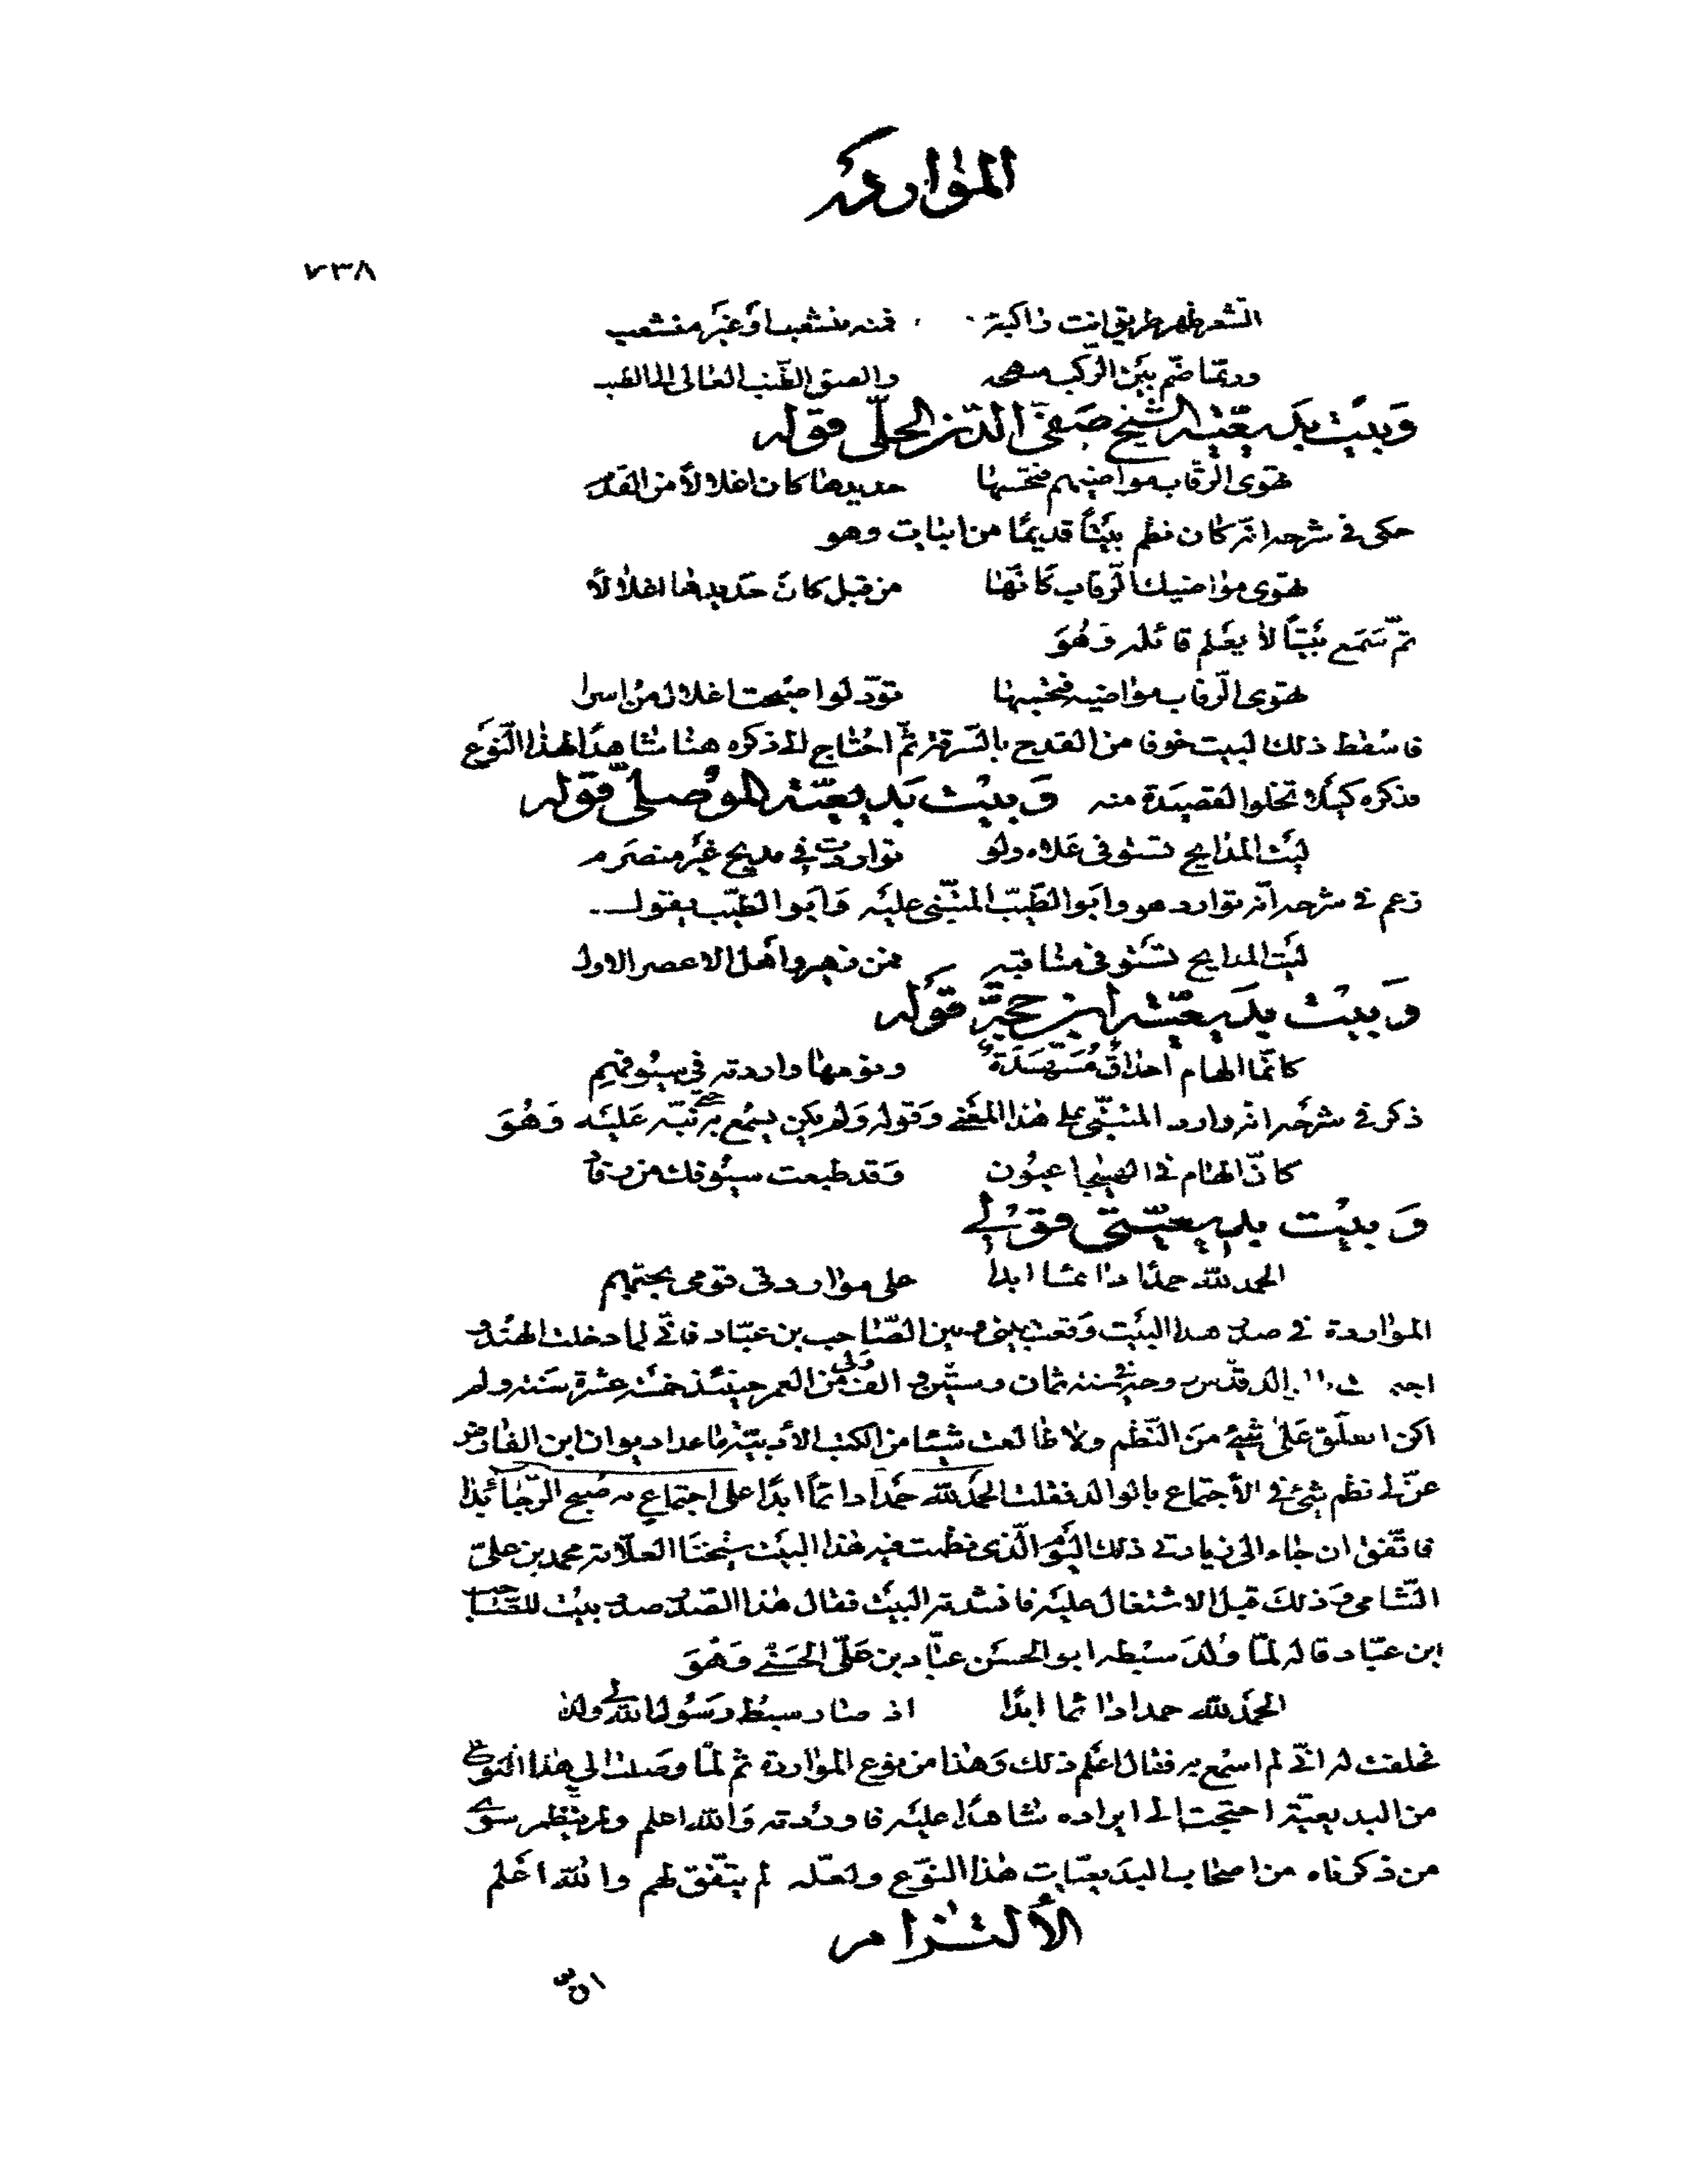 المواردة
٧٣٨
الشعر ظهر طريق انت راكبه فمنه منشعب او غير منشعب
وربما ضم بين الركب منهجه والصق الطنب العالى الى الطنب
وَبيت بديعيّة الشيخ صفىّ الدّين الحلّى قوله
تهوى الرّقاب مواضيهم فتحسبها حديدها كان اغلالاً من القدم
حكى فى شرحه انّه كان نظم بيتاً قديمًا من ابيات وهو
تهوى مواضيك الرّقاب كَانّها من قبل كانَ حَديدها اغلالا
ثمّ سَمع بَيتاً لا يعلم قائله وَهُوَ
تهوى الرّقاب مواضيه فتحسبها تودّ لو اصبحت اغلال من اسرا
فاسقط ذلك البيت خوفا من القدح بالسّرقة ثمّ احتاج الى ذكره هنا شاهدًا لهذا النّوع
فذكره كيلا تخلوا القصيدة منه وَبيت بَديعيّة الموصلىّ قوله
ليت المدايح تستوفى علاه ولو تواردت فى مديح غير منصرم
زعم فى شرحه انّه توارد هو وابو الطّيّب المتنبّى عليه وَابو الطيّب يقول
ليت المدايح تستوفى مناقبه فمن زهير واهل الاعصر الاول
وَبيت بديعيّة ابن حجّة قوله
كانّما الهام احداقٌ مُسَهّدَةٌ ونومها واردته فى سيوفهمِ
ذكر فى شرحه انّه وارد المتنبّى على هذا المعنى وَقوله وَلم يكن يسمع به حتى نبّه عَليه وَهُوَ
كانّ الهام فى الهيجا عيون وَقد طبعت سيوفك من رقاد
وَبيت بديعيّتى قولى
الحمد لله حمدًا دائما ابدا على مواردتى قومى بحبّهم
المواردة فى صدر هذا البيت وَقعت بينى وبين الصّاحب بن عبّاد فانّى لما دخلت الهند
الوالد قدّس روحه فى سنة ثمان وستّين و الف ولى من العمر حينئذ خمسة عشرة سَنة ولم
اكن اتعلّق عَلى شىء من النّظم ولا طالعت شيئا من الكتب الأدبيّة ماعدا ديوان ابن الفارض
عنّ لى نظم شىء فى الأجتماع بالوالد فقلت الحمد لله حَمدا دائماً ابدًا على اجتماعى به صبح الرّجا بدا
فاتّفق ان جاء الى زيارتى ذلك اليَوْم الّذى نظمت فيه هذا البيت شيخنَا العلّامة محمد بن علىّ
الشّامى وَذلكَ قبل الاشتغال عليه فانشدته البيت فقال هذا الصّدر صدر بيت للصّاحب
ابن عبّاد قاله لمّا وُلدَ سبطه ابو الحسن عبّاد بن عَلىّ الحسَنى وَهْوَ
الحمد لله حمدا دائما ابدًا اذ صار سبط رَسُول الله لى ولدا
فحلفت له انّى لم اسمع به فقال اعلم ذلك وَهذا من نوع المواردة ثم لمّا وصلت الى هذا النّوع
من البديعيّة احتجت الى ايراده شاهدًا عليه فاوردته وَالله اعلم ولم ينظم سوى
من ذكرناه من اصحاب البديعيّات هذا النّوع ولعلّه لم يتّفق لهم والله اعلم
الألتزام